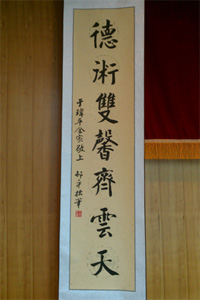 德術雙馨齊雲天
于瑋平全家敬上